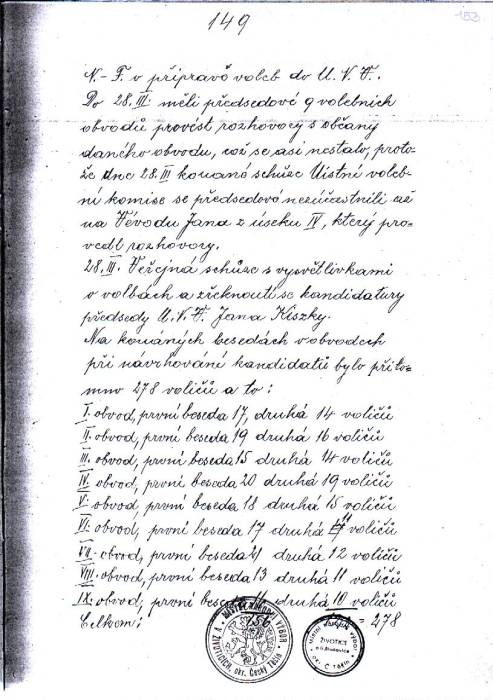 149
153
N.-F. v přípravě voleb do M.N.V.
Do 28.III. měli předsedové 9 volebních
obvodů provést rozhovory s občany
daného obvodu, což se asi nestalo, proto-
že dne 28.III konané schůze Místní voleb-
ní komise se předsedové nezúčastnili až
na Vévodu Jana z úseku IV, který pro-
vedl rozhovory.
28.III. Veřejná schůze s vysvětlivkami
o volbách a zřeknutí se kandidatury
předsedy M.N.V. Jana Kiszky.
Na konaných besedách v obvodech
při navrhování kandidatů bylo příto-
mno 278 voličů a to:
I. obvod, první beseda 17, druhá 14 voličů
II. obvod, první beseda 19 druhá 16 voličů
III. obvod, první beseda 15 druhá 14 voličů
IV. obvod, první beseda 20 druhá 19 voličů
V. obvod, první beseda 18 druhá 15 voličů
VI. obvod, první beseda 17 druhá 11 voličů
VII. obvod, první beseda 21 druhá 12 voličů
VIII. obvod, první beseda 13 druhá 11 voličů
IX. obvod, první beseda 11 druhá 10 voličů
Celkem: 156 = 278
MÍSTNÍ NÁRODNÍ VÝBOR V ŽIVOTICÍCH, okr. Český Těšín
ŽIVOTICE
okr. Č. Těšín